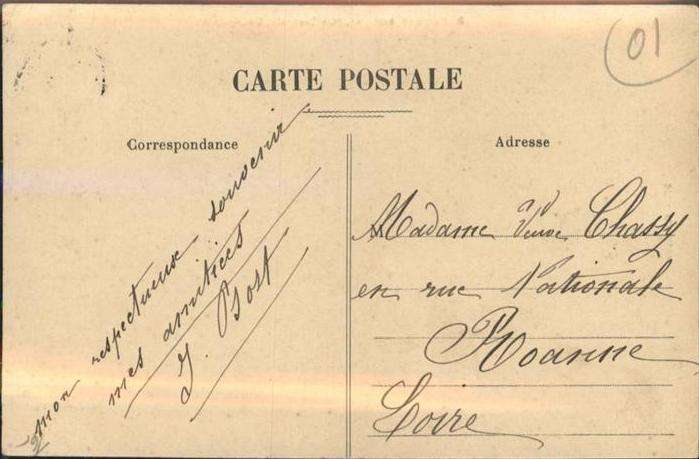 01
CARTE POSTALE
Correspondance
Adresse
mon respectueux souvenir
mes amitiés
J. Bost
Madame Veuve Chassy
en rue Nationale
Roanne
Loire